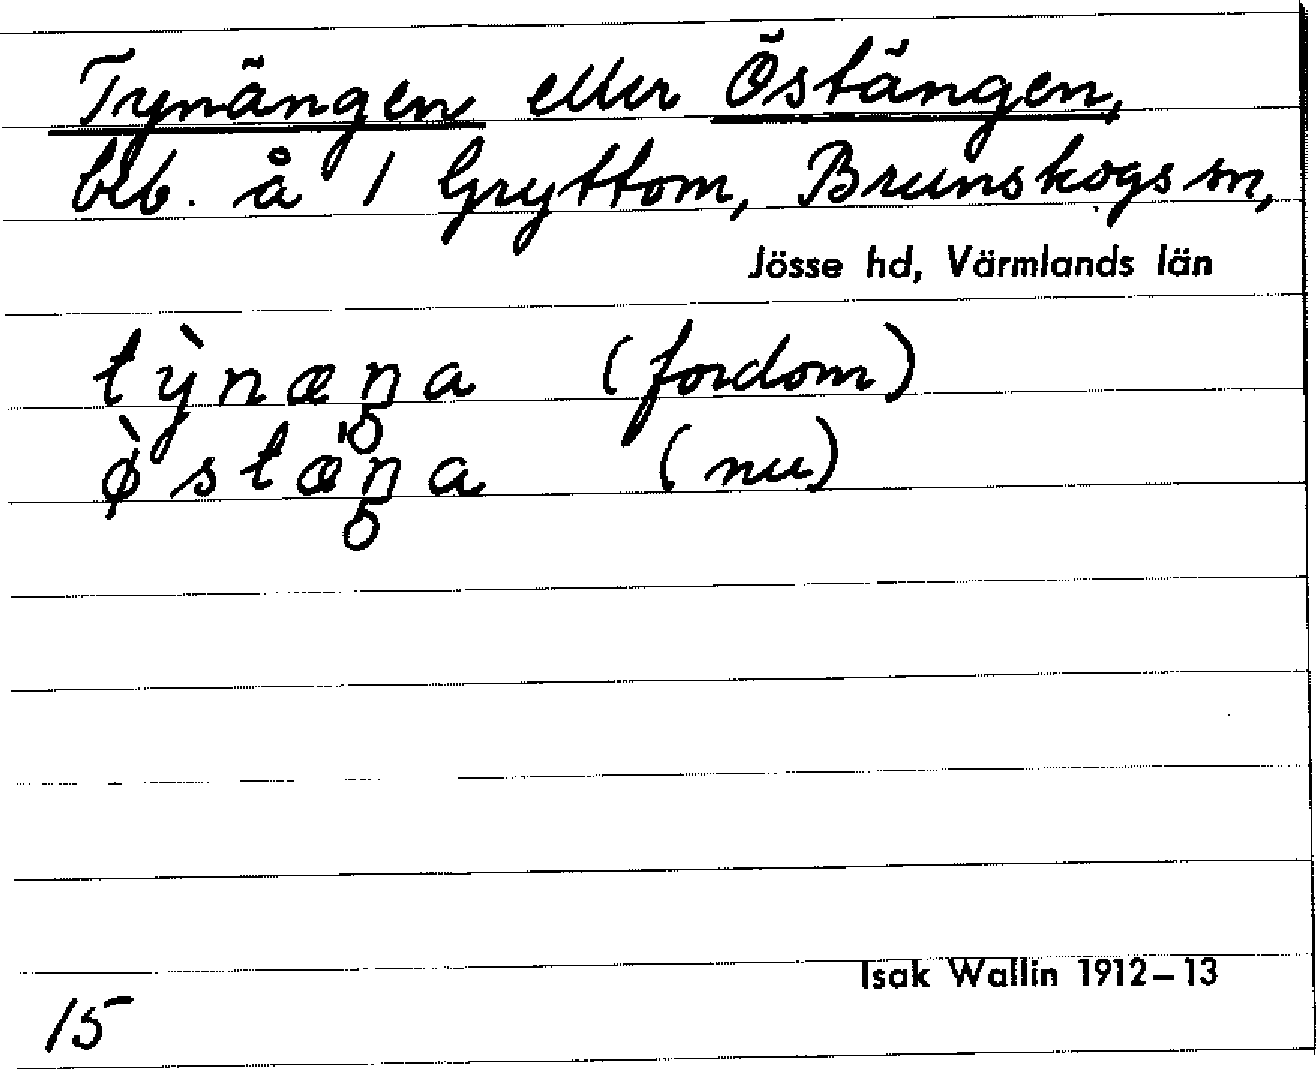 Tynängen eller Östängen,
beb. å 1 Gryttom, Brunskogs sn,
Jösse hd, Värmlands län
ty̍̀næŋa (fordom)
ø̀stæŋa (nu)
Isak Wallin 1912–13
15